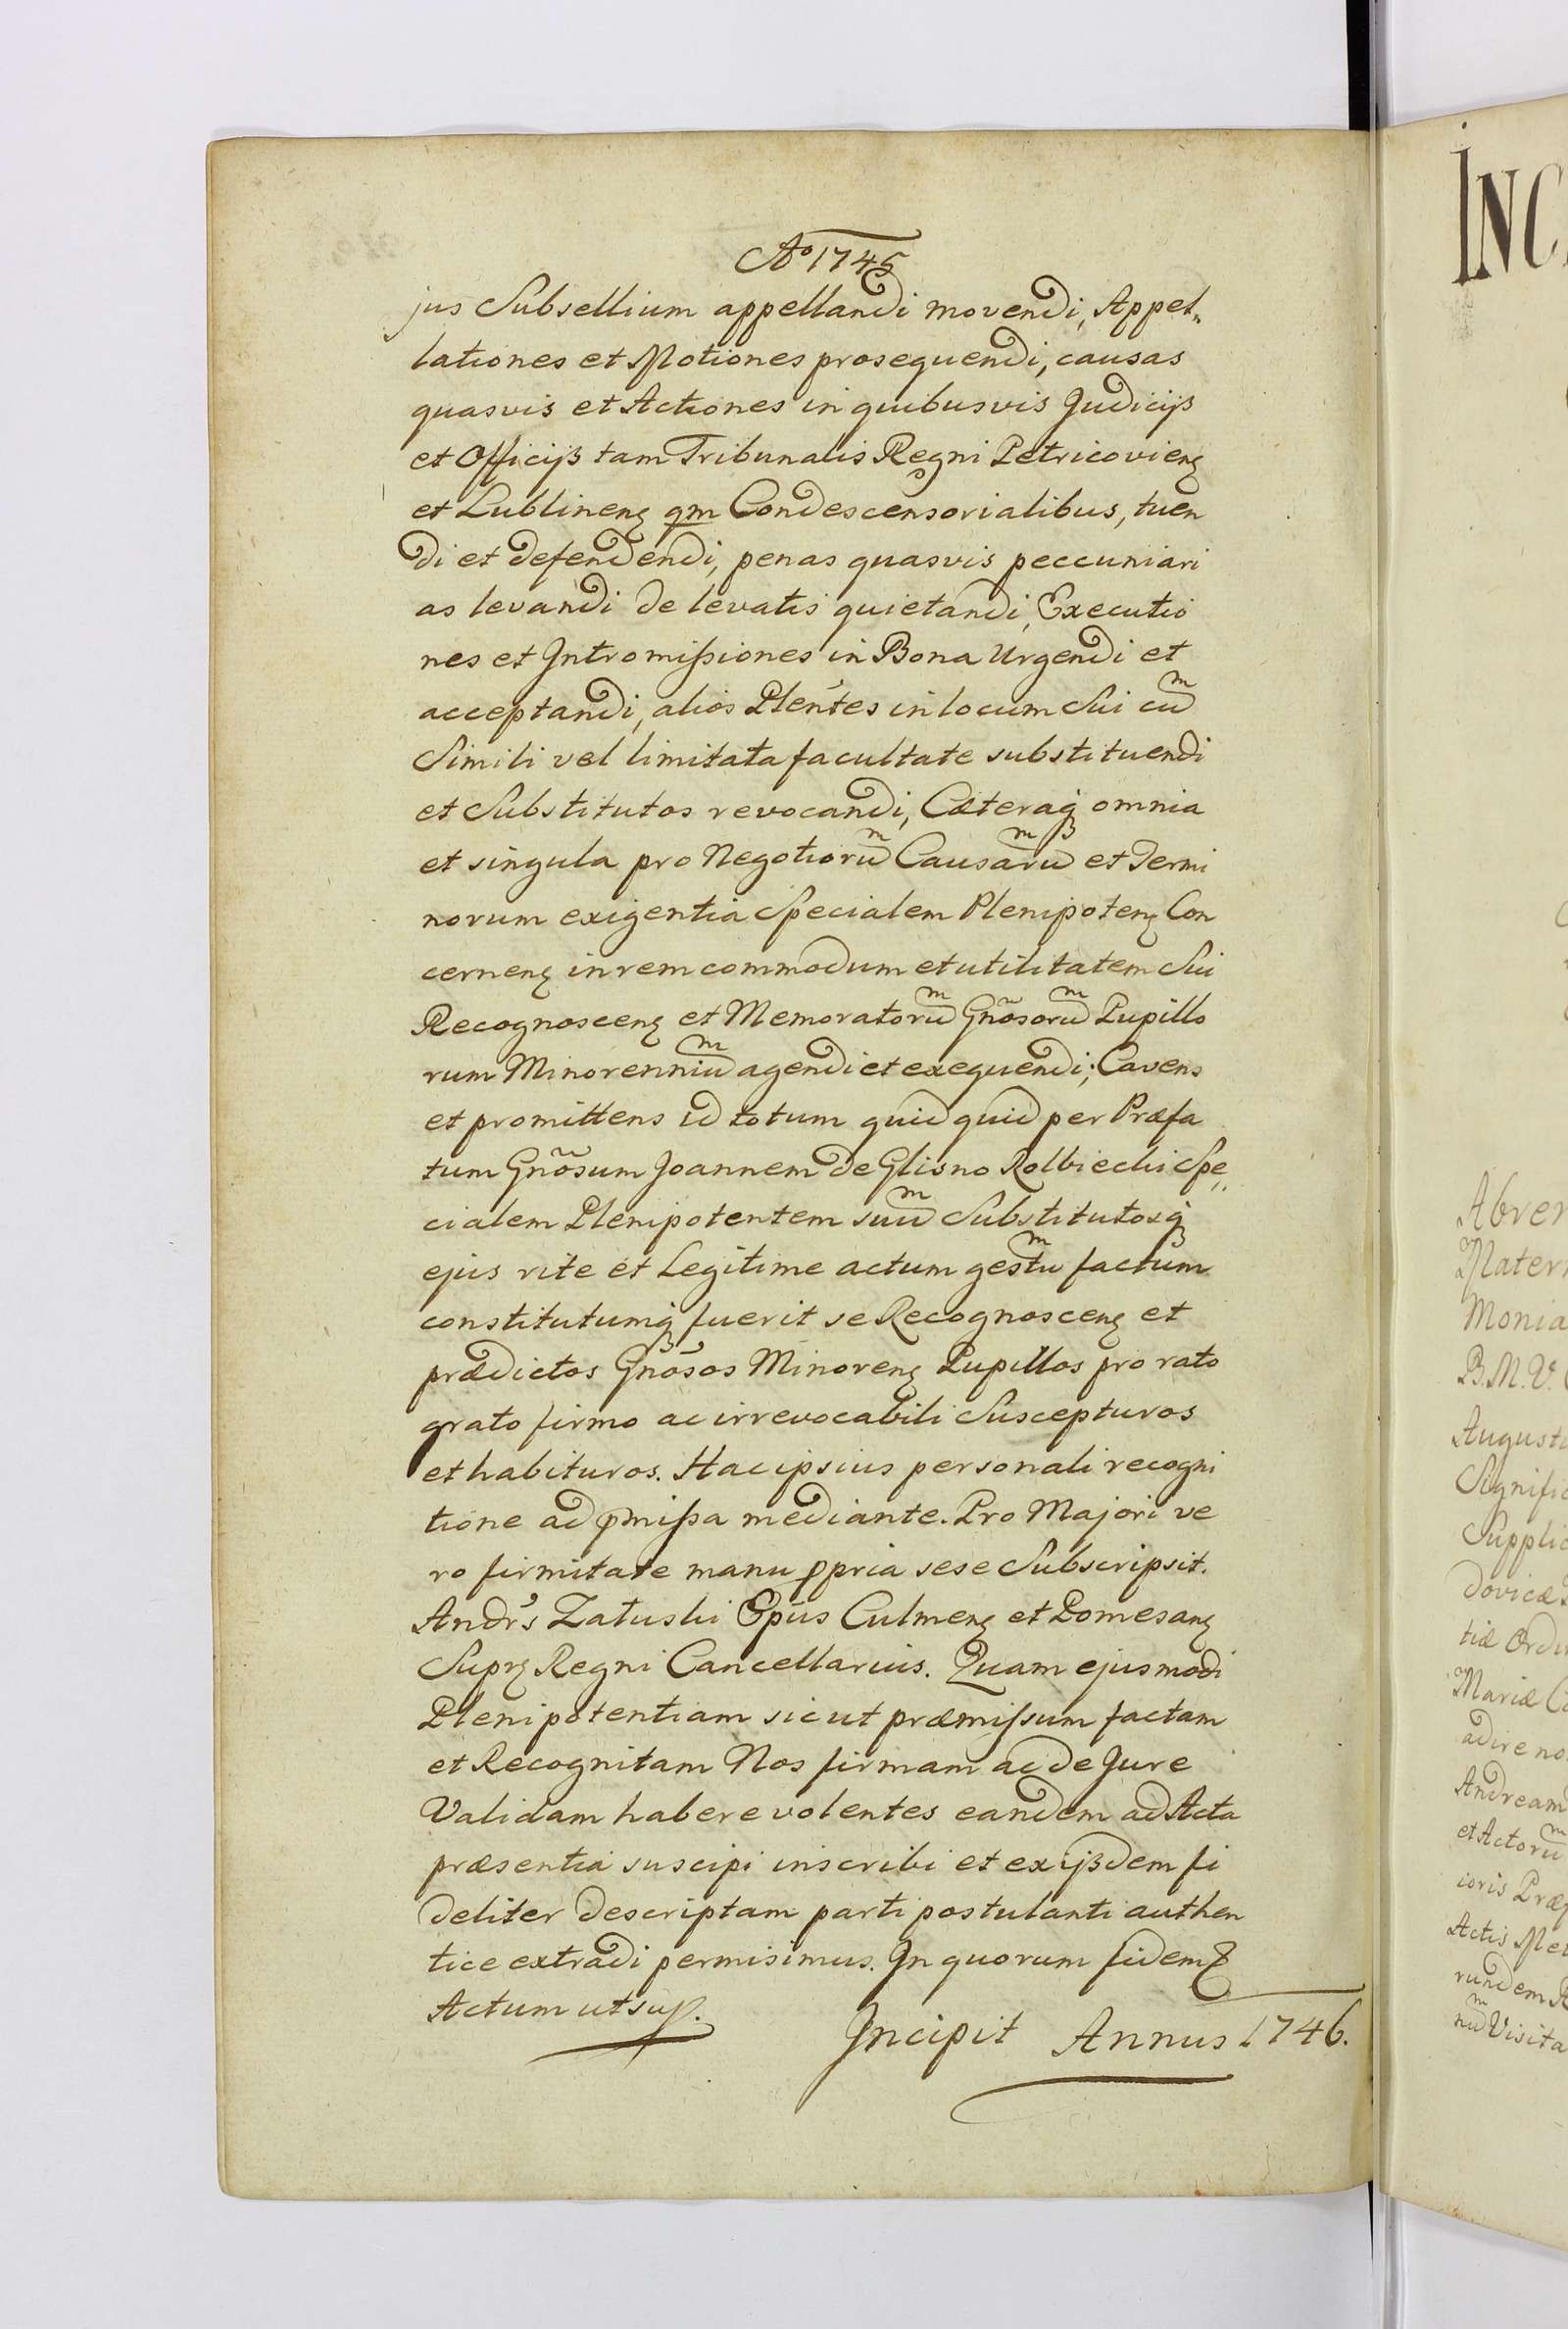 Aº 1745
jus Subsellium appellandi movendi, Appel„
lationes et Motiones prosequendi, causas
quasvis et Actiones in quibusvis Judicijs
et Officijs tam Tribunalis Regni Petricovieñ
et Lublineñ qm Condescensorialibus, tuen
di et defendendi, penas quasvis peccuniari
as levandi de levatis quietandi, Executio
nes et Intromissiones in Bona Urgendi et
acceptandi, alios Plen̄tes in locum Sui cum
Simili vel limitata facultate substituendi
et Substitutos revocandi, Cæteraq́ omnia
et singula pro Negotiorum Causarum et Termi
norum exigentia Specialem Plenipoteñ Con
cerneñ in rem commodum et utilitatem Sui
Recognosceñ et Memoratorum Gñosorum Pupillo
rum Minorennium agendi et exequendi; Cavens
et promittens id totum quid quid per Præfa
tum Gñosum Joannem de Glisno Rolbiecki Spe„
cialem Plenipotentem suum Substitutosq́
ejus rite et Legitime actum gestum factum
constitutumq́ fuerit se Recognosceñ et
prædictos Gñosos Minoreñ Pupillos pro rato
grato firmo ac irrevocabili Suscepturos
et habituros. Hac ipsius personali recogni
tione ad pmissa mediante. Pro Majori ve
ro firmitate manu ppria sese Subscripsit.
Andr's Załuski Epus Culmeñ et Pomesañ
Supr Regni Cancellarius. Quam ejusmodi
Plenipotentiam sicut præmissum factam
et Recognitam Nos firmam ac de Jure
Validam habere volentes eandem ad Acta
præsentia suscipi inscribi et ex ijsdem fi
deliter descriptam parti postulanti authen
tice extradi permisimus. In quorum fidem &
Actum ut sup.
Incipit Annus 1746.
INC
Abre
Mater
Monia
B. M. V.
August
Signific
Supplic
dovicæ
tiæ Ordi
Mariæ C
adire no
Andream
et Actorum
ioris Præ
Actis Me
rundem R
num Visita